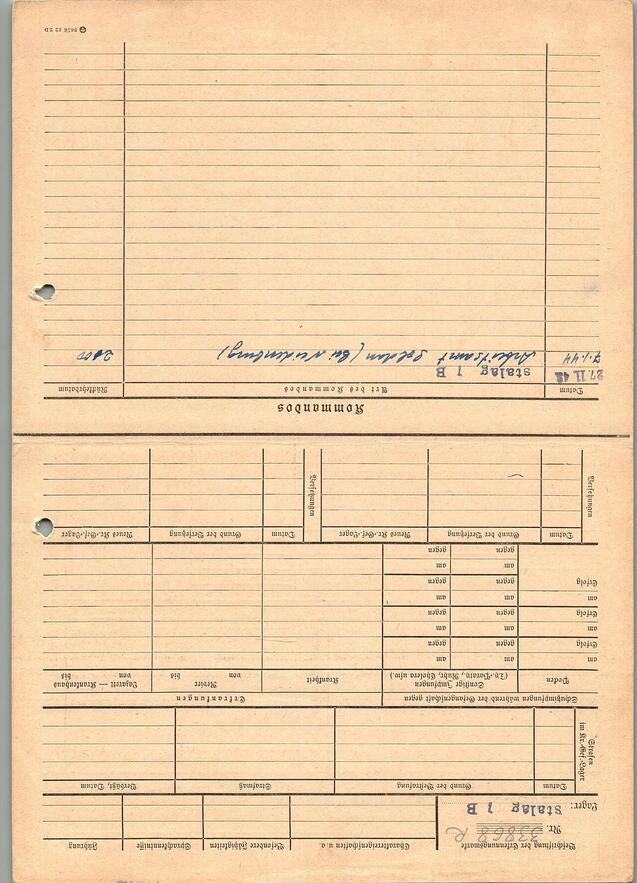 Beschriftung der Erkennungsmarke
Nr. 33868 R
Lager: Stalag I B
Charaktereigenschaften u. a.
Besondere Fähigkeiten
Sprachkenntnisse
Führung
Strafen im Kr.-Gef.-Lager
Datum
Grund der Bestrafung
Strafmaß
Verbüßt, Datum
Schutzimpfungen während der Gefangenschaft gegen
Erkrankungen
Pocken
Sonstige Impfungen
(Ty.-Paraty., Ruhr, Cholera usw.)
Krankheit
Revier
von
bis
Lazarett — Krankenhaus
von
bis
am
am
am
Erfolg
gegen
gegen
am
am
am
Erfolg
gegen
gegen
am
am
am
Erfolg
gegen
gegen
am
am
gegen
gegen
Versetzungen
Datum
Grund der Versetzung
Neues Kr.-Gef.-Lager
Versetzungen
Datum
Grund der Versetzung
Neues Kr.-Gef.-Lager
Kommandos
Datum
Art des Kommandos
Rückkehrdatum
27. 11. 43
Stalag I B
7.1.44
Arbeitsamt Soldau (bei Neidenburg)
9658 42 2D